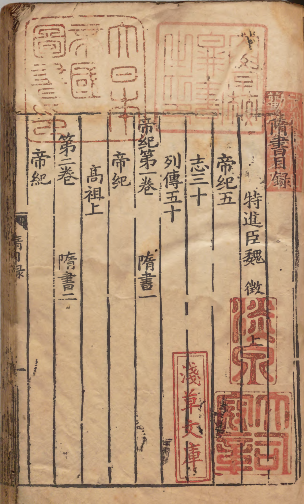 隋書目錄
特進臣魏 徵 上
帝紀五
志三十
列傳五十
帝紀第一卷 隋書一
帝紀
高祖上
第二卷 隋書二
帝紀
大日本
帝國
圖書印
淺草文庫